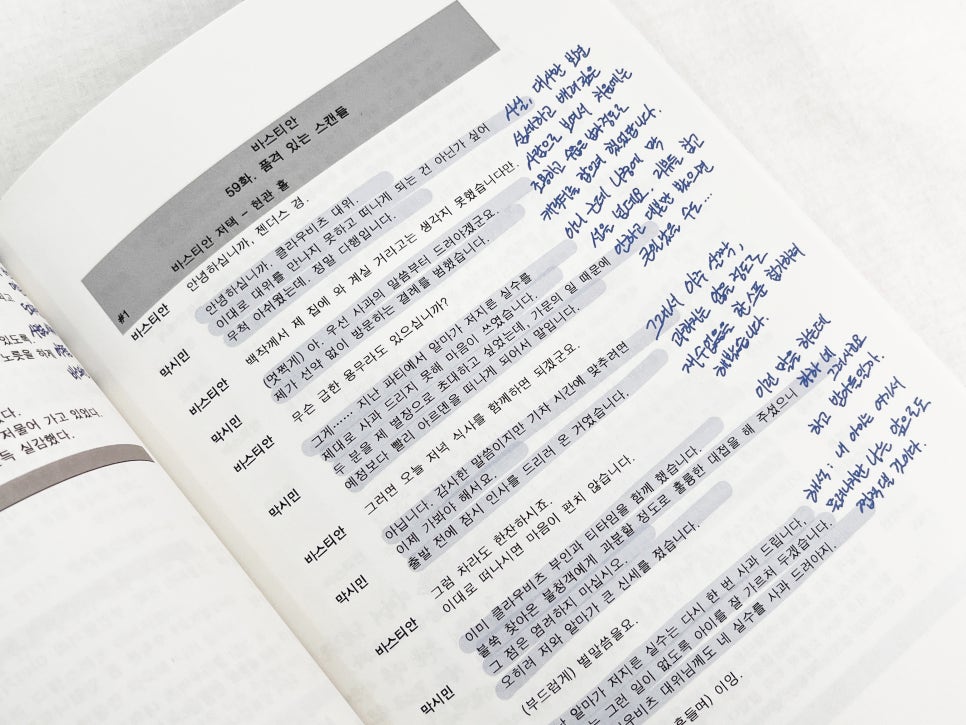 있도록,
노릇을 하게
다.
저물어 가고 있었다.
득 실감했다.
바스티안
59화. 품격 있는 스캔들
#1 바스티안 저택 – 현관 홀
바스티안 안녕하십니까, 젠더스 경.
막시민 안녕하십니까. 클라우비츠 대위.
이대로 대위를 만나지 못하고 떠나게 되는 건 아닌가 싶어
무척 아쉬웠는데, 정말 다행입니다.
바스티안 백작께서 제 집에 와 계실 거라고는 생각지 못했습니다만.
막시민 (멋쩍게) 아. 우선 사과의 말씀부터 드려야겠군요.
제가 선약 없이 방문하는 결례를 범했습니다.
바스티안 무슨 급한 용무라도 있으십니까?
막시민 그게…… 지난 파티에서 알마가 저지른 실수를
제대로 사과 드리지 못해 마음이 쓰였습니다.
두 분을 제 별장으로 초대하고 싶었는데, 가문의 일 때문에
예정보다 빨리 아르덴을 떠나게 되어서 말입니다.
바스티안 그러면 오늘 저녁 식사를 함께하면 되겠군요.
막시민 아닙니다. 감사한 말씀이지만 기차 시간에 맞추려면
이제 가봐야 해서요.
출발 전에 잠시 인사를 드리러 온 거였습니다.
바스티안 그럼 차라도 한잔하시죠.
이대로 떠나시면 마음이 편치 않습니다.
막시민 이미 클라우비츠 부인과 티타임을 함께 했습니다.
불쑥 찾아온 불청객에게 과분할 정도로 훌륭한 대접을 해 주셨으니
그 점은 염려하지 마십시오.
오히려 저와 알마가 큰 신세를 졌습니다.
바스티안 (부드럽게) 별말씀을요.
막시민 알마가 저지른 실수는 다시 한 번 사과 드립니다.
는 그런 일이 없도록 아이를 잘 가르쳐 두겠습니다.
라우비츠 대위님께도 네 실수를 사과 드려야지.
흔들며) 이잉.
사실, 대사만 보면
섬세하고 배려 깊은
사람으로 보여서 처음에는
조용하고 숨은
캐릭터를 잡으려 했었답니다.
아니 근데 나중에 막
시을 뵌데요. 리뷰를 잡고
안하고 대본만 봤으면
큰일났을 수도...
그래서 아주 살짝,
티나지는 않을 정도로
재수없음을 한 스푼 첨가하려
해봤습니다.
이런 말을 하는데
하하 네
하고 그러시군요
받아들인다.
해석 : 내 아이는 여기서
물러나지만 나는 앞으로도
질척댈 것이다.